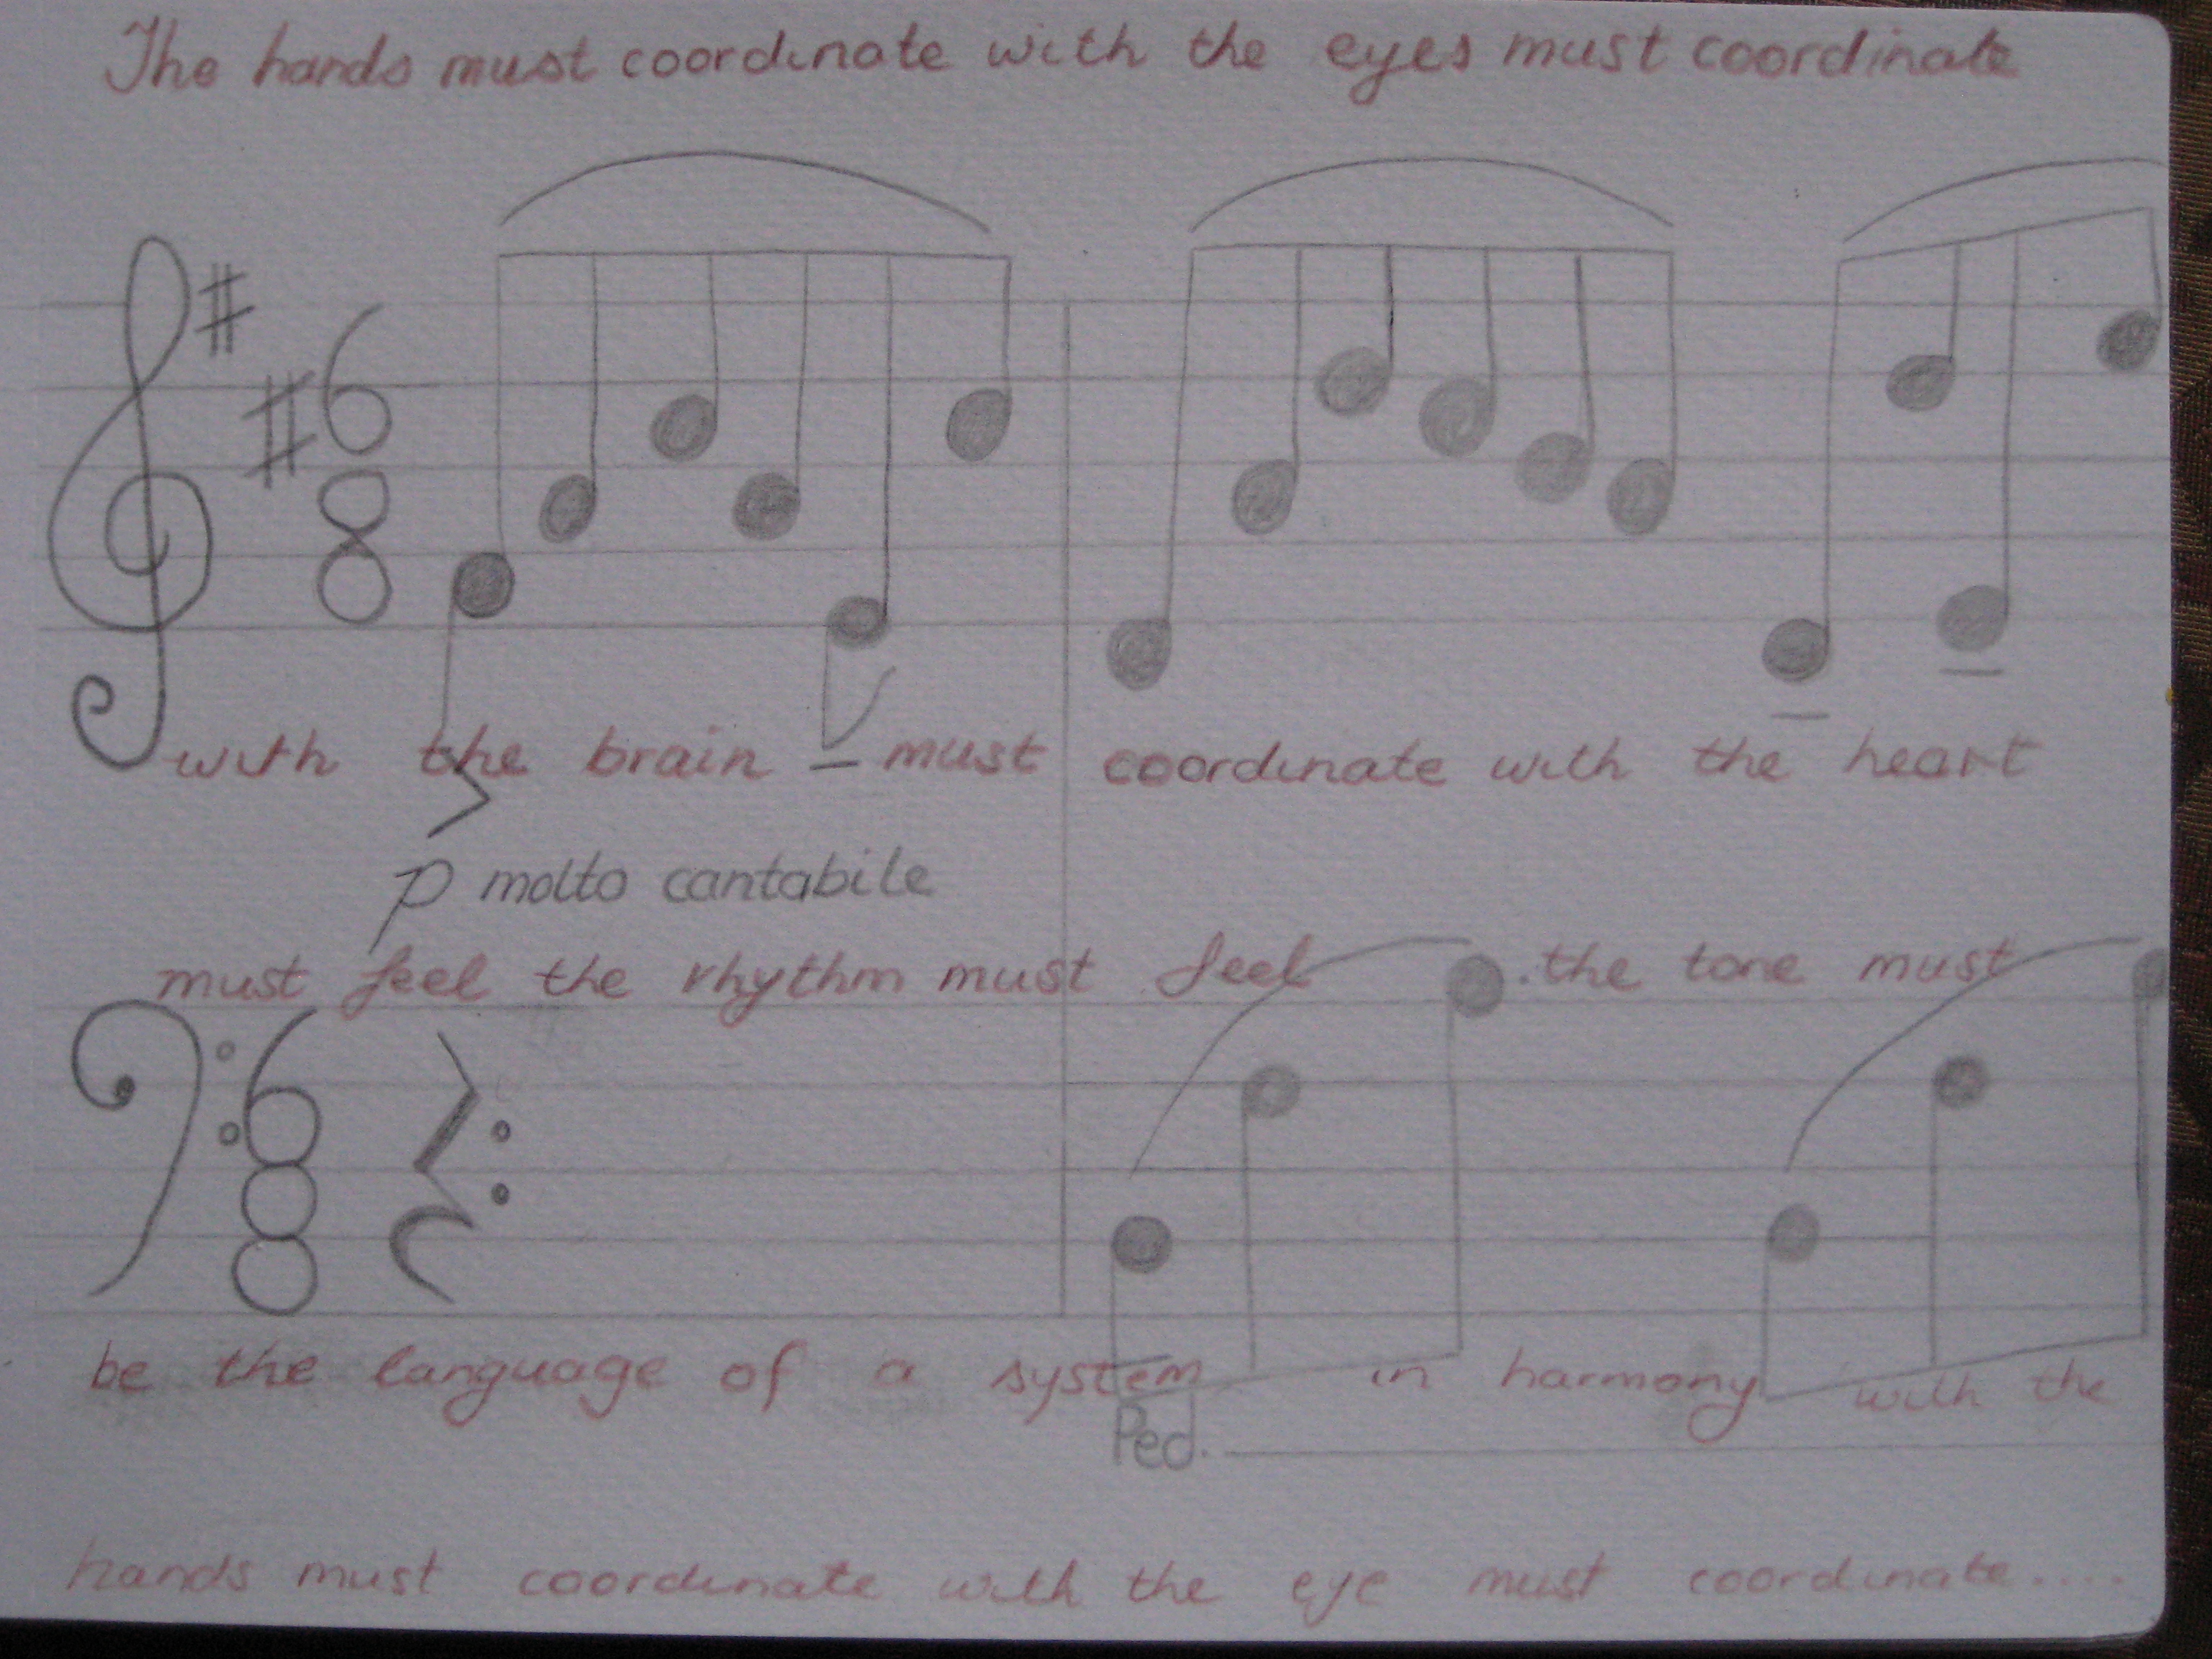 The hands must coordinate with the eyes must coordinate
6
8
with the brain – must coordinate with the heart
p molto cantabile
must feel the rhythm must feel the tone must
6
8
be the language of a system in harmony with the
Ped.
hands must coordinate with the eye must coordinate....